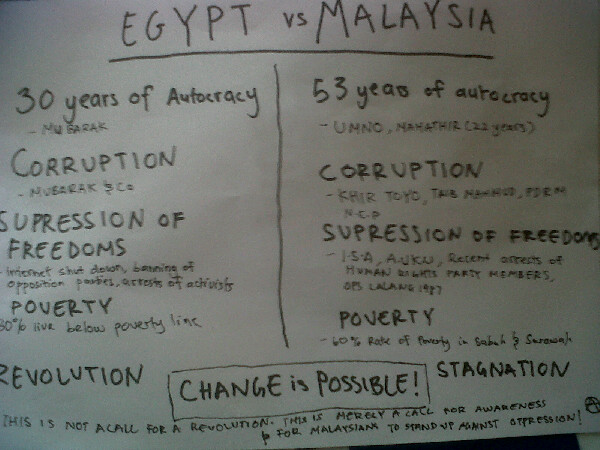 EGYPT vs MALAYSIA
30 years of Autocracy
- MUBARAK
CORRUPTION
- MUBARAK & Co
SUPRESSION OF
FREEDOMS
- Internet shut down, banning of
opposition parties, arrests of activists
POVERTY
30% live below poverty line
REVOLUTION
53 years of autocracy
- UMNO, MAHATHIR (22 years)
CORRUPTION
- KHIR TOYO, TAIB MAHMUD, PDRM
N.E.P
SUPRESSION OF FREEDOMS
- I.S.A, AUKU, Recent arrests of
HUMAN RIGHTS PARTY MEMBERS,
OPS LALANG 1987
POVERTY
- 60% Rate of Poverty in Sabah & Sarawak
STAGNATION
CHANGE is POSSIBLE!
THIS IS NOT A CALL FOR A REVOLUTION. THIS IS MERELY A CALL FOR AWARENESS
& FOR MALAYSIANS TO STAND UP AGAINST OPPRESSION!